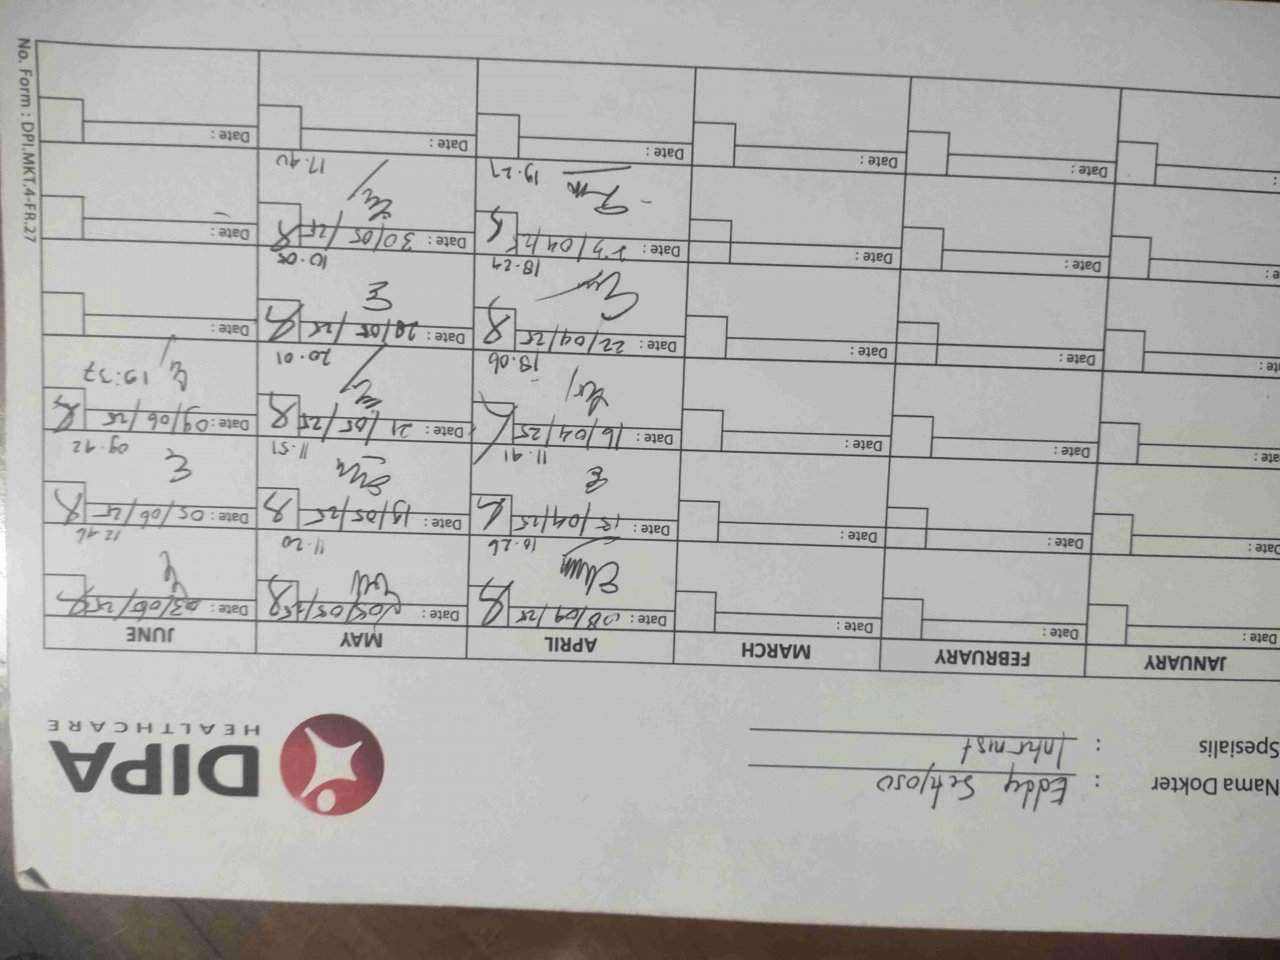 Nama Dokter : Eddy Setyoso
Spesialis : Internist
DIPA
HEALTHCARE
JANUARY FEBRUARY MARCH APRIL MAY JUNE
Date : Date : Date : Date : 08/04/25 Date : Date : 03/06/25
10.26 11.20 12.46
Date : Date : Date : Date : 15/04/25 Date : 19/05/25 Date : 05/06/25
11.41 11.51 09.42
Date : Date : Date : Date : 16/04/25 Date : 21/05/25 Date : 09/06/25
18.06 20.01 19:37
Date : Date : Date : Date : 22/04/25 Date : 28/05/25 Date :
18.29 10.05
Date : Date : Date : Date : 23/04/25 Date : 30/05/25 Date :
19.27 17.40
Date : Date : Date : Date : Date : Date :
No. Form : DPI.MKT.4-FR.27